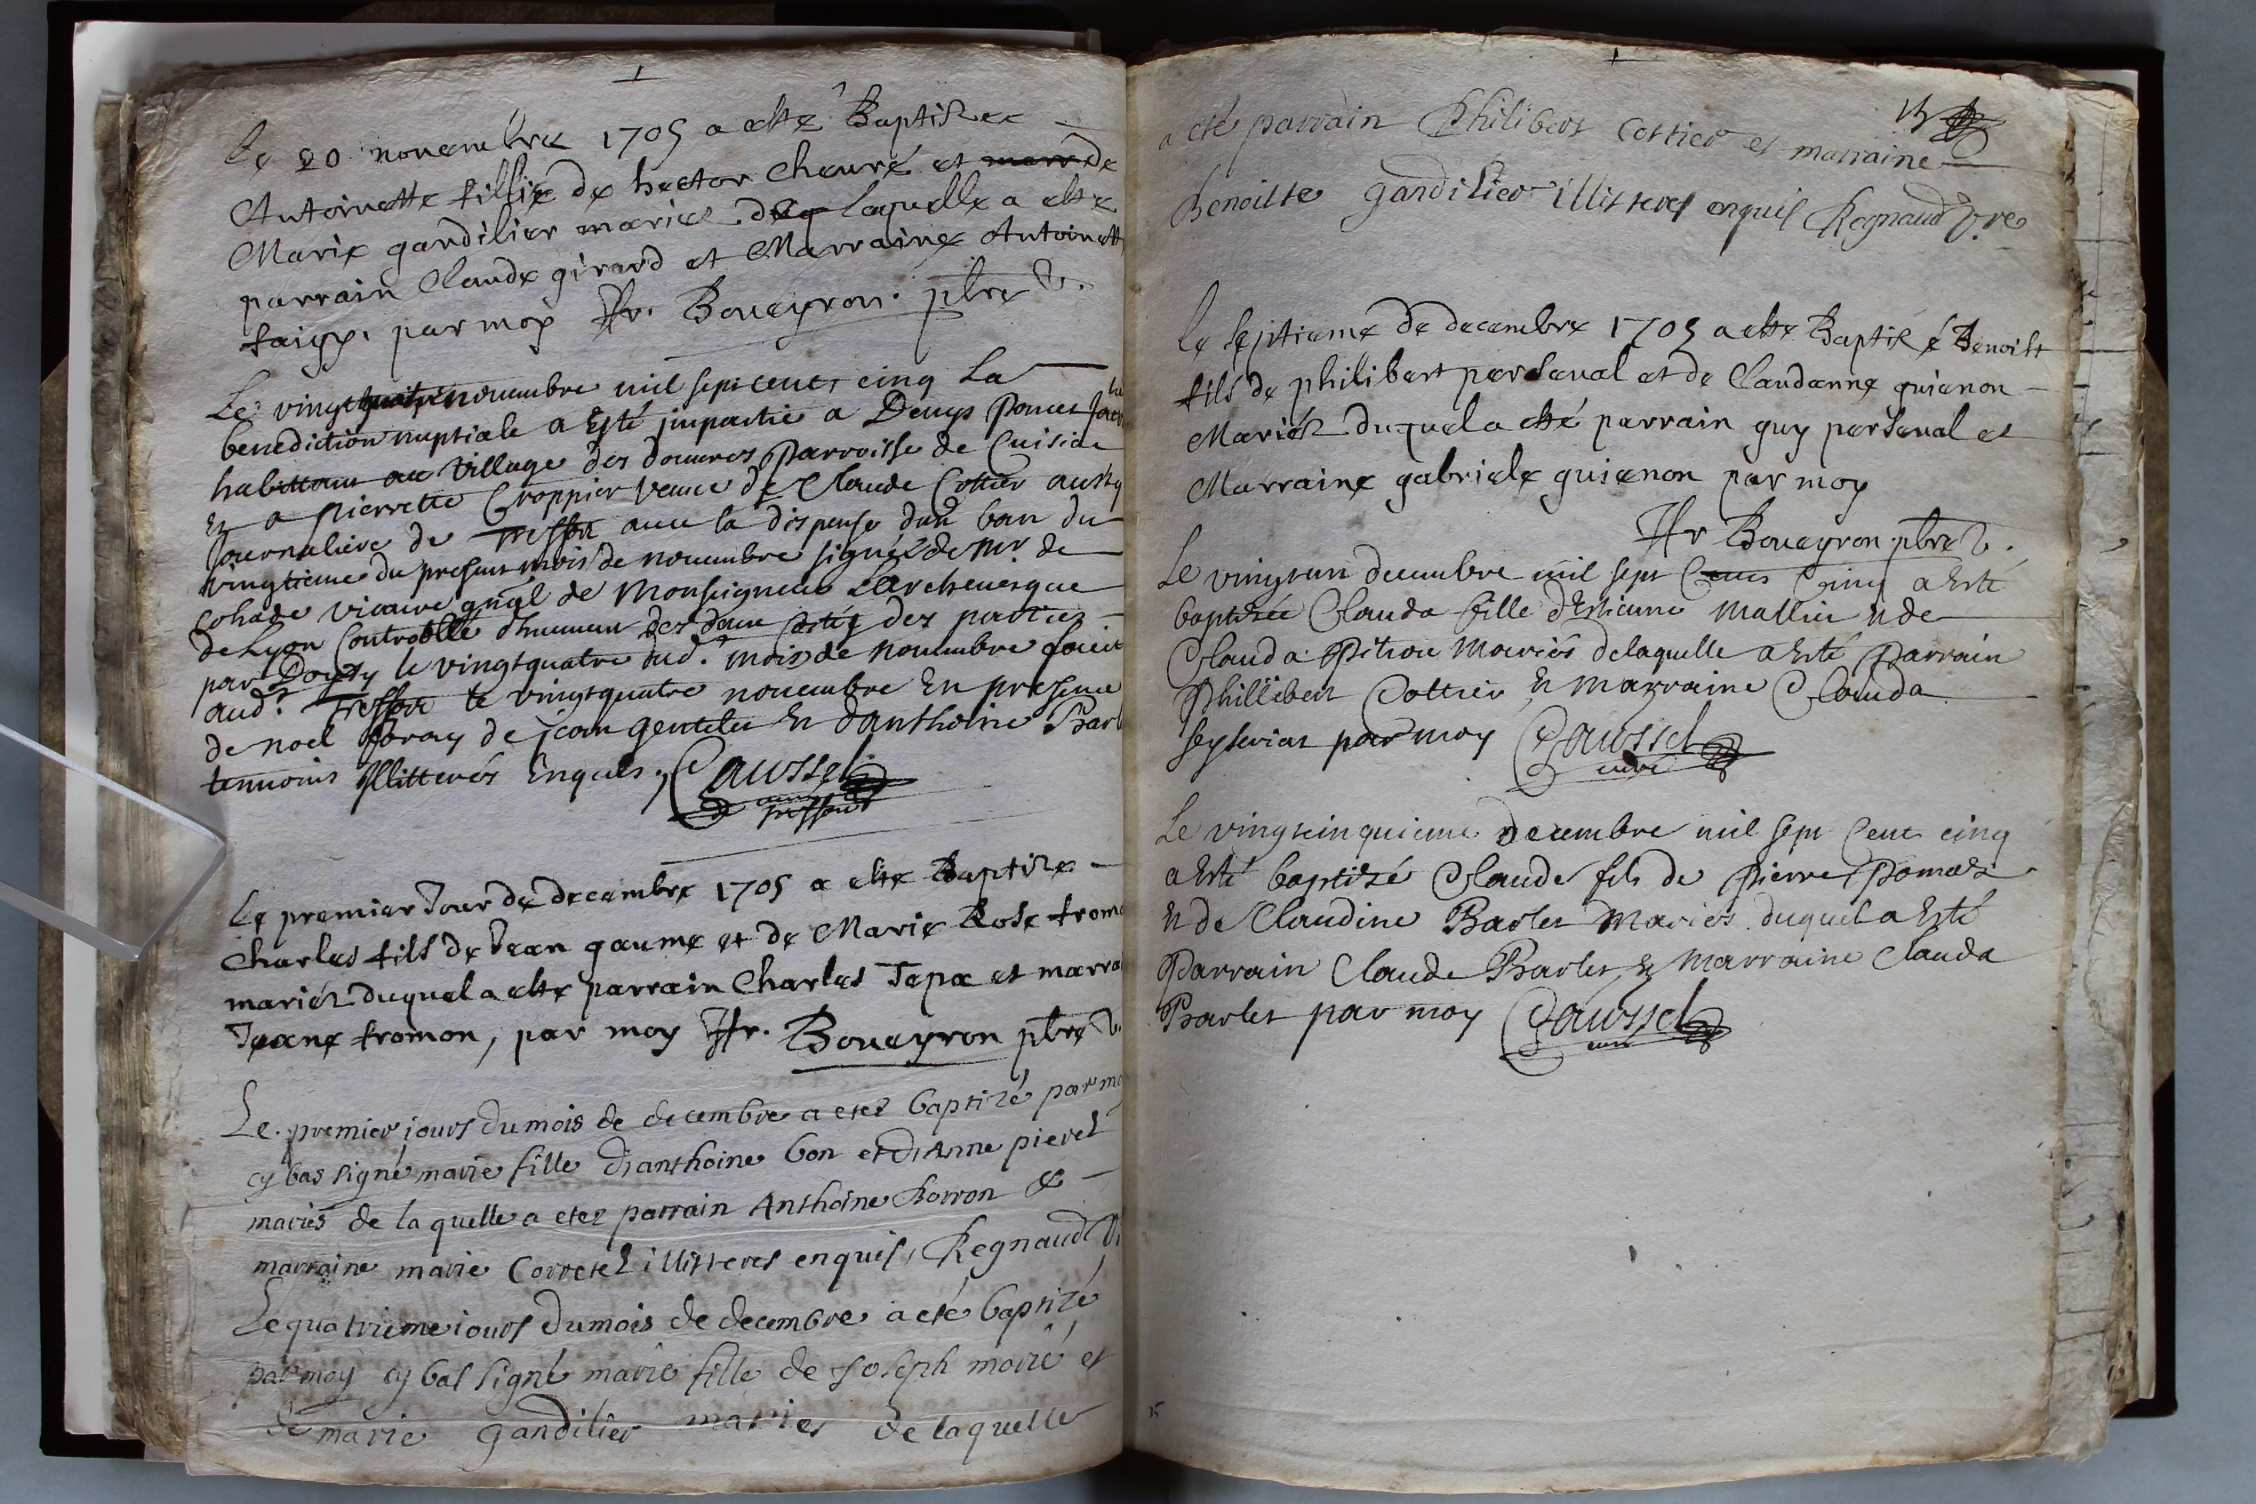 Le 20 novembre 1705 a este Baptisee
Antoinette fillie de hector Chevré et de
Marie gandilier mariez laquelle a este
parrain Claude girard et Marraine Antoinett
par moy fr. Boueyron. pbre v.
Le vingt novembre mil sept cent cinq La
benediction nuptiale a Esté impartie a Denys Poncet
habittant au village des domeres Parroisse de Cuisia
Et a Pierrette Croppier veuve de Claude Cottier aussy
Journaliere de Tressor avec la dispense d'un ban du
vingtieme du present mois de novembre signée de Mr de
Cohade vicaire gnal de Monseigneur L'archevesque
de Lyon Controollé des deux costéz des parties
par le vingtquatre dud. mois de novembre faict
aud. Tressor le vingtquatre novembre En presence
de noel de jean gentelet Et d'anthoine Barl
temmoins Illitterés Enquis, Caussel
curé
Le premier Jour de decembre 1705 a este Baptize
Charles fils de Jean gaume et de Marie Rose from
mariéz duquel a este parrain Charles Tepa et marra
Jeane fromon, par moy fr. Boueyron pbre v.
Le premier jours du mois de decembre a etez baptizé par mo
cy bas signé marie fille d'anthoine bon et d'Anne pieret
mariés de la quelle a etez parrain Anthoine Borron &
marraine marie Corretel illitteres enquis, Regnaud Vi
Le quatrieme jours du mois de decembre a eté baptizé
par moy cy bas signé marie fille de Joseph moiré et
de marie gandilier mariés de laquelle
15
a eté parrain Philibert Cottier et marraine
Benoitte gandilier illitteres enquis Regnaud V.re
Le septieme de decembre 1705 a este Baptisé Benoist
fils de philibert perseval et de Claudanne guienon
Mariéz duquel a esté parrain guy perseval et
Marraine gabriele guienon par moy
fr Boueyron pbre v.
Le vingt un decembre mil sept Cens Cinq a Esté
baptisée Clauda fille d'Estienne Mathieu et de
Clauda Pitiou Mariés delaquelle a Esté Parrain
Phillibert Cottier Et Marraine Clauda
par moy Caussel
curé
Le vingt cinquieme decembre mil sept Cent cinq
a Esté baptizé Claude fils de Pierre Pomaz
et de Claudine Barlet Mariés duquel a Esté
Parrain Claude Barlet Et Marraine Clauda
Barlet par moy Caussel
curé